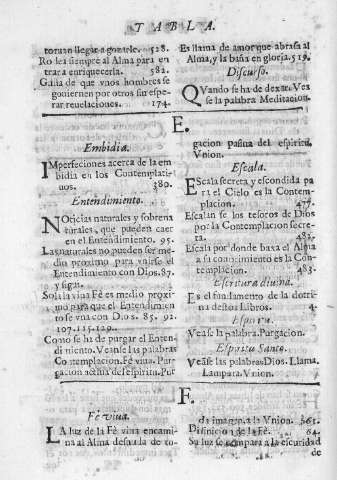 TABLA.
toruan llegar a gozarle. 528.
Rodea siempre al Alma para en
trar a enriquecerla. 582.
Gusta de que vnos hombres se
gouiernen por otros sin esperar
rar reuelaciones. 174.
Es llama de amor que abrasa al
Alma, y la baña en gloria. 519.
Discurso.
QVando se ha de dexar. Vea
se la palabra Meditacion.
E.
Embidia.
IMperfeciones acerca de la em
bidia en los Contemplati-
uos. 380.
Entendimiento.
NOticias naturales y sobrena
turales, que pueden caer
en el Entendimiento. 95.
Las naturales no pueden ser me
dio proximo para vnirse el
Entendimiento con Dios. 87.
y sigu.
Sola la viua Fè es medio proxi
mo para que el Entendimien
to se vna con Dios. 85. 92.
107. 115. 129.
Como se ha de purgar el Enten-
dimiento. Veanse las palabras
Contemplacion. Fè viua. Pur
gacion actiua del espiritu. Pur
gacion pasiua del espiritu.
Vnion.
Escala.
EScala secreta y escondida pa
ra el Cielo es la Contem-
placion. 477.
Escalan se los tesoros de Dios
por la Contemplacion secre-
ta. 482.
Escala por donde baxa el Alma
a su conocimiento es la Con-
templacion. 483.
Escritura diuina.
Es el fundamento de la dotri-
na destos Libros. 4.
Espiritu.
Vease la palabra. Purgacion.
Espiritu Santo.
Veanse las palabras. Dios. Llama.
Lampara. Vnion.
F.
Fè viua.
LA luz de la Fè viua encami-
na al Alma desnuda de to-
da imagen, a la Vnion. 561.
Difinicion de la Fè. 64.
Su luz se compara a la escuridad
de